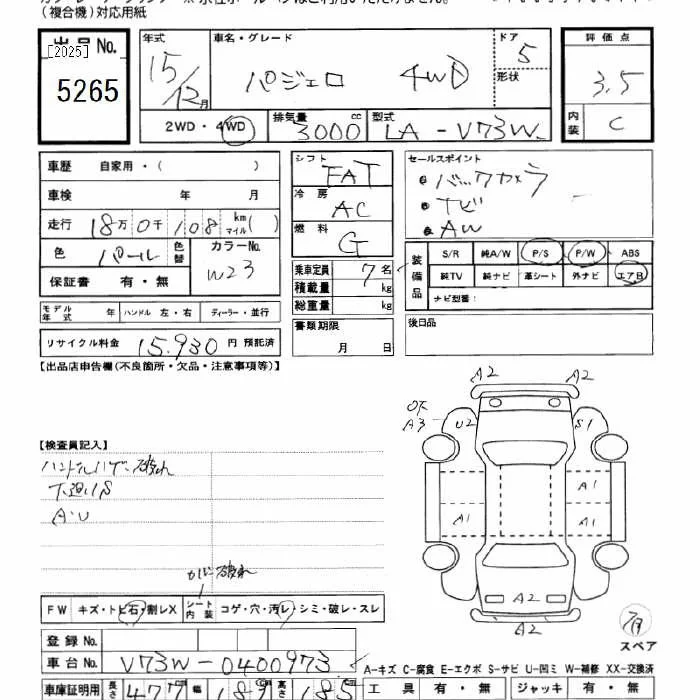 (複合機)対応用紙
出品No.
[2025]
5265
年式 15/12月
車名・グレード パジェロ 4WD
ドア 5
形状
評価点 3.5
内装 C
2WD・4WD
排気量 3000 cc
型式 LA-V73W
車歴 自家用・( )
車検 年 月
走行 18万0千108 km マイル( )
色 パール 色替
カラーNo. W23
保証書 有・無
モデル年式 年 ハンドル 左・右 ディーラー・並行
リサイクル料金 15.930 円 預託済
シフト FAT
冷房 AC
燃料 G
乗車定員 7名
積載量 kg
総重量 kg
書類期限
月 日
セールスポイント
バックカメラ
ナビ
AW
装備品
S/R 純A/W P/S P/W ABS
純TV 純ナビ 革シート 外ナビ エアB
ナビ型番:
後日品
【出品店申告欄(不良箇所・欠品・注意事項等)】
A2
A3
U2
S1
A1
A1
A1
A2
A2
スペア
【検査員記入】
下廻りS
A・U
FW キズ・トビ石・割レX
シート内装 コゲ・穴・汚レ・シミ・破レ・スレ
登録No.
車台No. V73W-0400973
A-キズ C-腐食 E-エクボ S-サビ U-凹ミ W-補修 XX-交換済
車庫証明用 長さ 477 幅 189 高さ 185
工具 有・無 ジャッキ 有・無